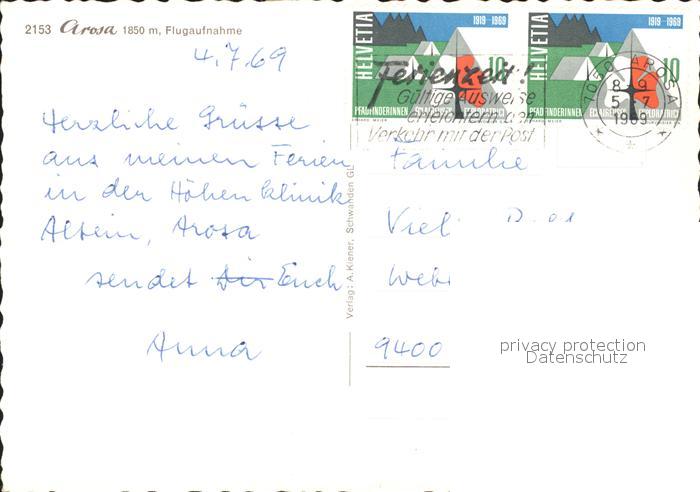 2153 Arosa 1850 m, Flugaufnahme
4.7.69
Herzliche Grüsse
aus meinen Ferien
in der Höhenklinik
Altein, Arosa
sendet Dir Euch
Anna
Verlag: A. Kiener, Schwanden GL
HELVETIA
1919-1969
10
PFADFINDERINNEN ECLAIREUSES ESPLORATRICI
HELVETIA
1919-1969
10
PFADFINDERINNEN ECLAIREUSES ESPLORATRICI
Ferienzeit!
Gültige Ausweise
erleichtern den
Verkehr mit der Post
7050 AROSA
1969
Familie
9400
privacy protection
Datenschutz